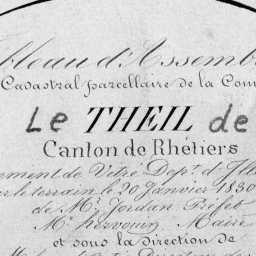 bleau d'Assemb
Cadastral parcellaire de la Com
Le THEIL de
Canton de Rhétiers
ement de Vitré Dept. d'Ille
le terrain le 20 Janvier 1830
de Mr. Jordan Préfet
Mr. hervouin Maire
et sous la direction de